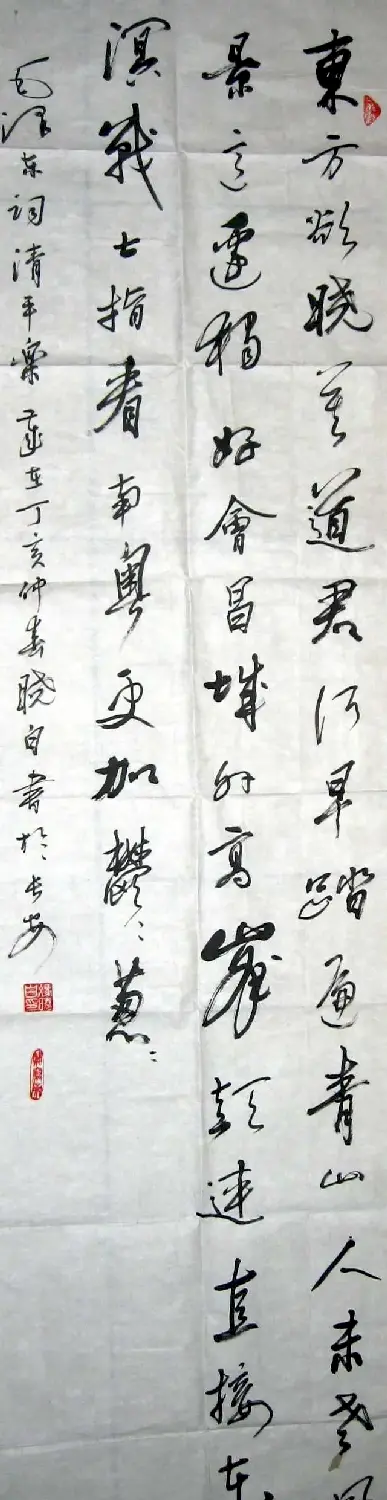 東方欲晓莫道君行早踏遍青山人未老風
景这邊獨好會昌城外高峯顛連直接东
溟戰士指看南粤更加鬱〻葱〻
毛泽东词清平樂 歲在丁亥仲春晓白書於长安